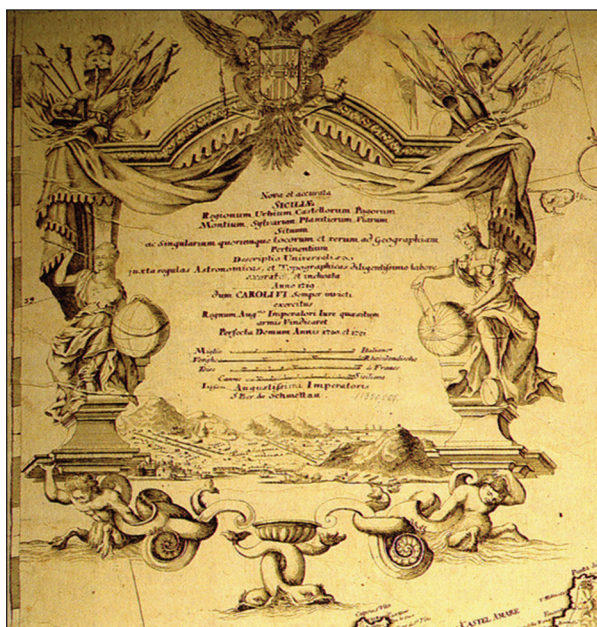 Nova et accurata
SICILIÆ
Regionum, Urbium, Castellorum, Pagorum
Montium, Sylvarum, Planitierum, Viarum
Situum
ac Singularium quorumque locorum et rerum ad Geographiam
Pertinentium
Descriptio Universalis
juxta regulas Astronomicas, et Topographicas diligentissimo labore
et indicata
Anno 1719
Dum CAROLI VI Semper invicti
exercitus
Regnum Imperatori Iure quæsitum
armis Vindicaret
Perfecta Demum Annis 1720 et 1721
Miglie Italiane
Rheinlandische
Toise de France
Canne Siciliane
Iussu Augustissimi Imperatoris
de Schmettau
39
CASTEL AMARE